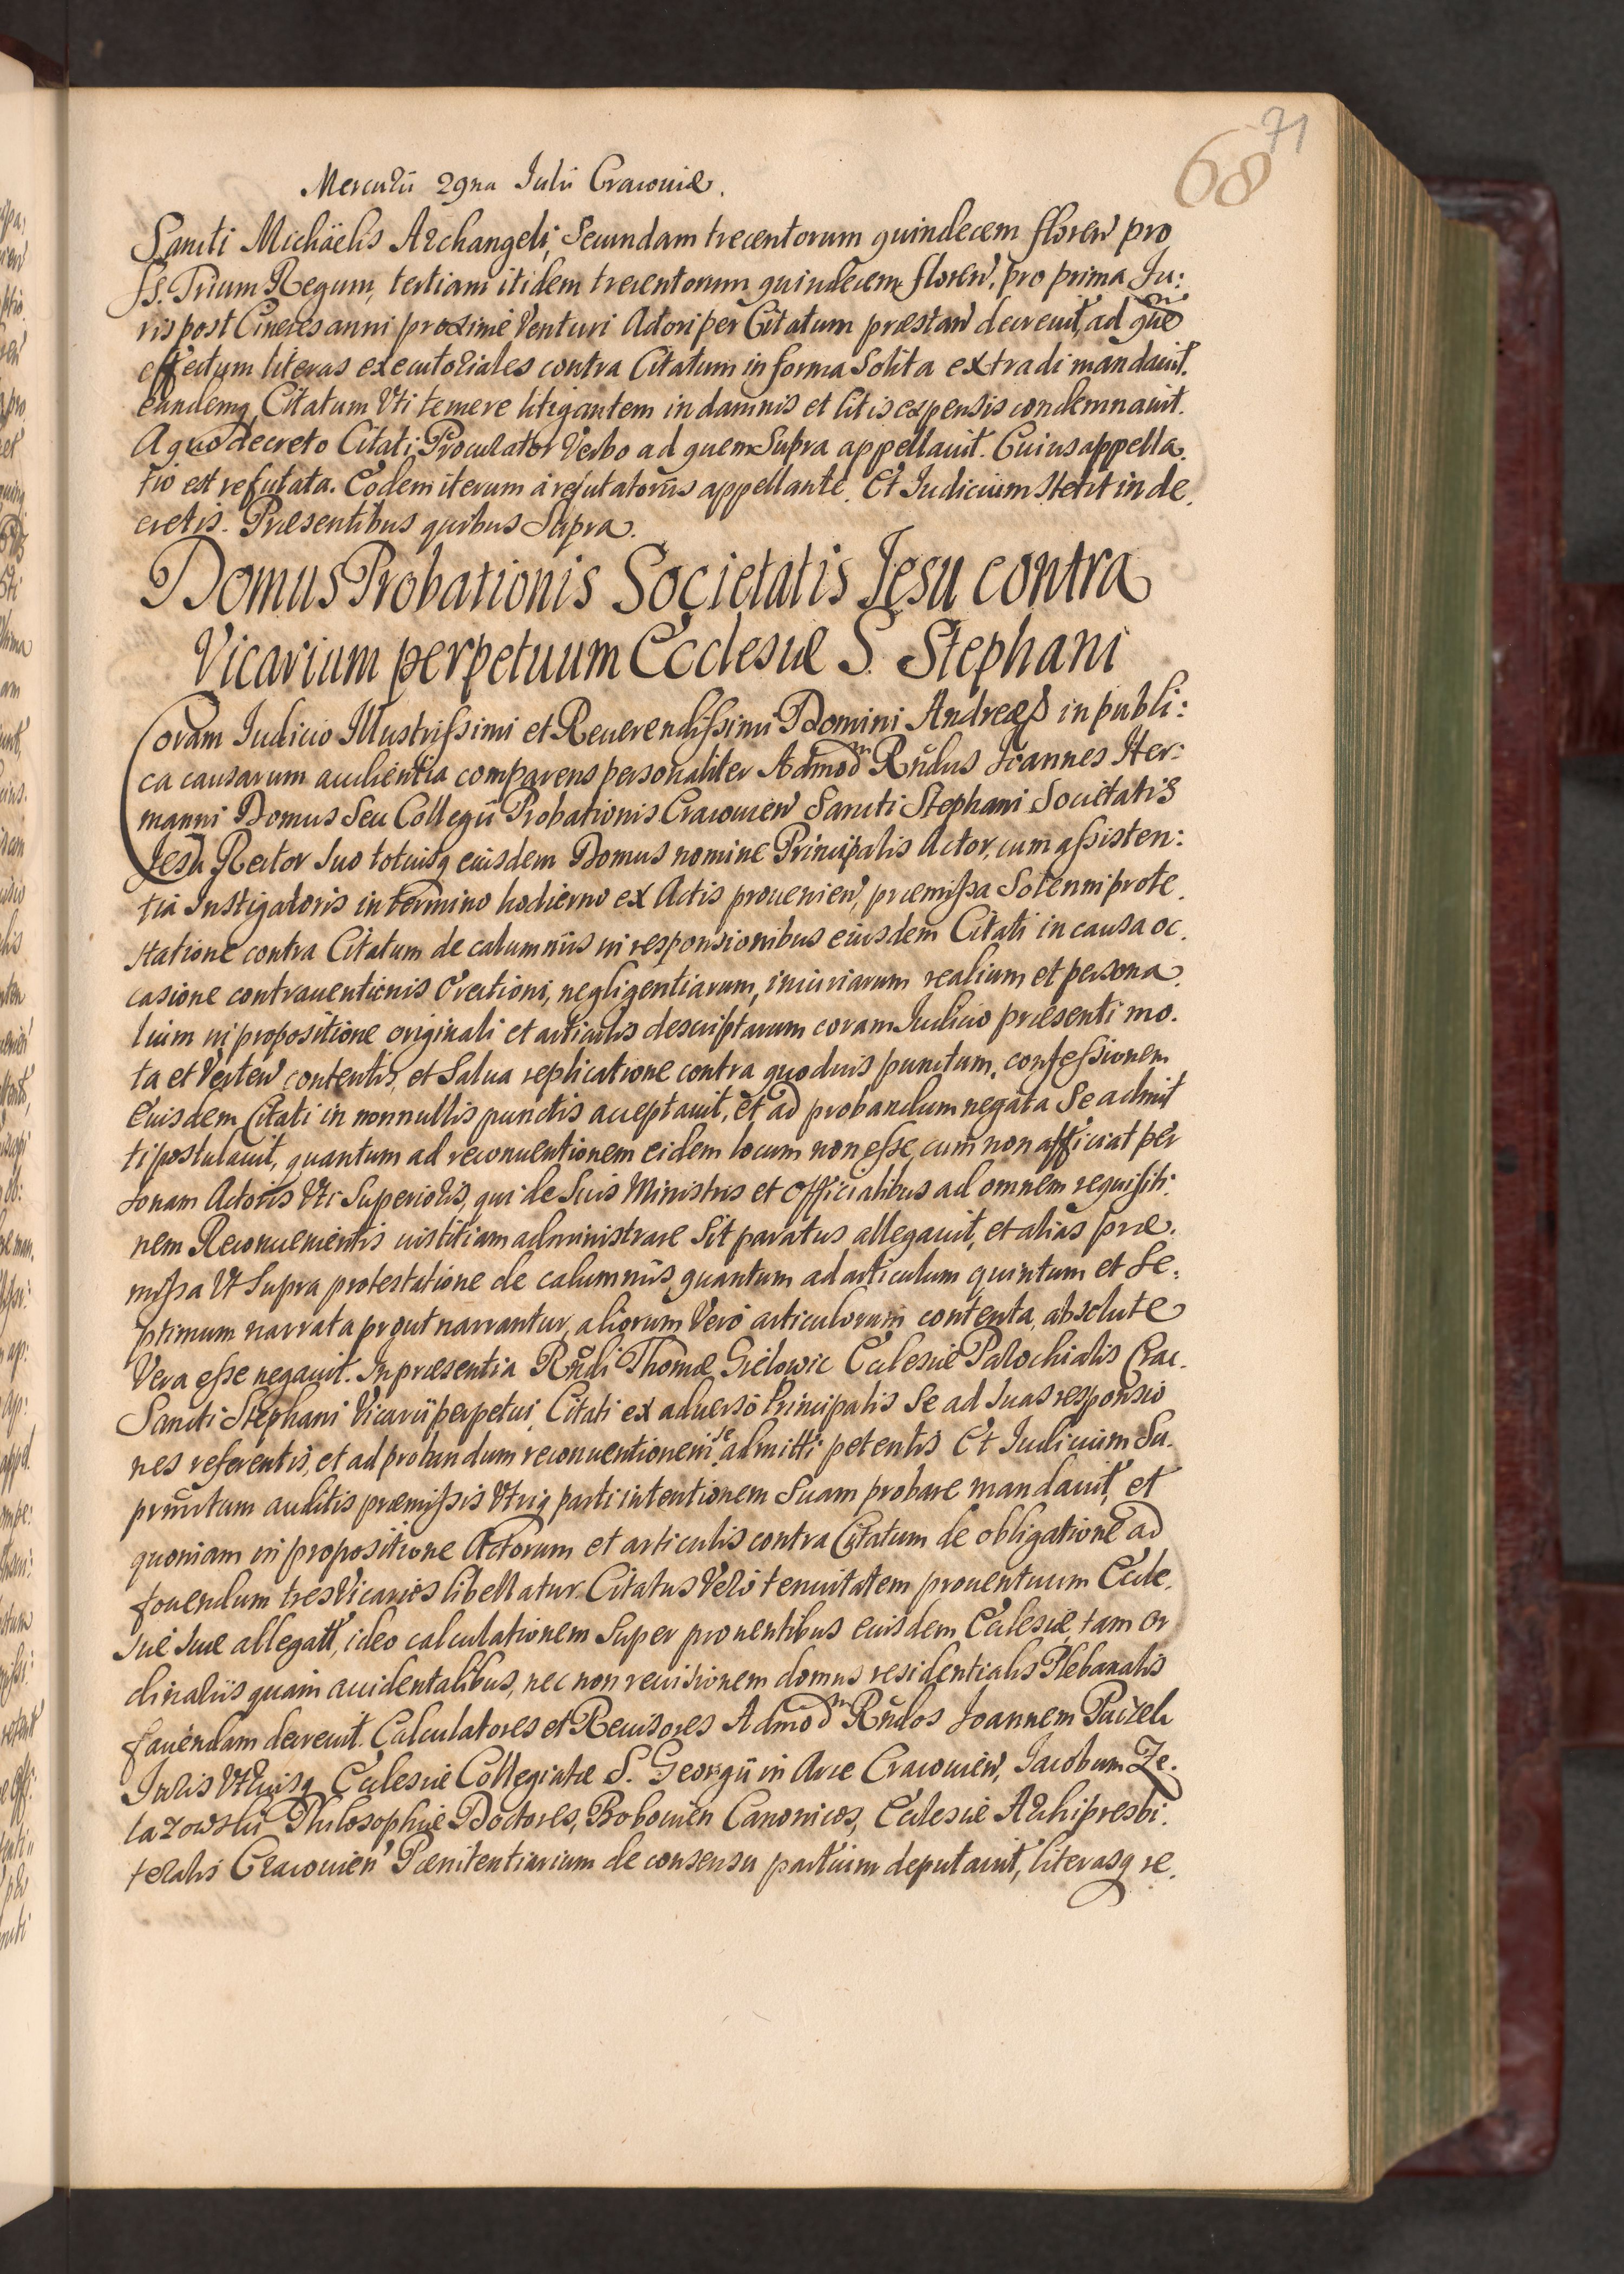 71
68
Mercurii 29na Iulii Cracouiæ.
Sancti Michäelis Archangeli, Secundam trecentorum quindecem floren̄ pro
SS. Trium Regum, tertiam itidem trecentorum quindecem floren̄. pro prima Iu:
ris post Cineres anni proxime Venturi Actori per Citatum præstan̄ decreuit, ad quē
effectum literas executoriales contra Citatum in forma Solita extradi mandauit.
eundemq Citatum Vti temere litigantem in damnis et litis expensis condemnauit.
A quo decreto Citati Procurator Verbo ad quem Supra appellauit. Cuius appella.
tio est refutata. Eodem iterum à refutatoriis appellante. Et Iudicium stetit in de.
cretis. Præsentibus quibus Supra.
Domus Probationis Societatis Iesu contra
Vicarium perpetuum Ecclesiæ S. Stephani
Coram Iudicio Illustrissimi et Reuerendissimi Domini Andreæ in publi:
ca causarum audientia comparens personaliter Admod m Rn̄dus Ioannes Her:
manni Domus Seu Collegii Probationis Cracouien̄ Sancti Stephani Societatis
Iesu Rector Suo totiusq eiusdem Domus nomine Principalis Actor, cum assisten:
tia Instigatoris in termino hodierno ex Actis prouenien̄, præmissa Solenni prote.
statione contra Citatum de calumniis in responsionibus eiusdem Citati in causa oc.
casione contrauentionis Erectioni, negligentiarum, iniuriarum realium et persona.
lium in propositione originali et articulis descriptarum coram Iudicio præsenti mo.
ta et Verten̄ contentis, et Salua replicatione contra quoduis punctum, confessionem
Eiusdem Citati in nonnullis punctis acceptauit, et ad probandum negata Se admit
ti postulauit, quantum ad reconuentionem eidem locum non esse, cum non afficiat per
sonam Actoris Vti Superioris, qui de Suis Ministris et Officialibus ad omnem requisitio.
nem Reconuenientis iustitiam administrare Sit paratus allegauit, et alias præ.
missa Vt Supra protestatione de calumniis, quantum ad articulum quintum et Se.
ptimum narrata prout narrantur, aliorum Vero articulorum contenta, absolute
Vera esse negauit. In præsentia Rn̄di Thomæ Gielowic Ecclesiæ Parochialis Crac.
Sancti Stephani Vicarii perpetui, Citati ex aduerso Principalis Se ad Suas responsio
nes referentis, et ad probandum reconuentionem se admitti petentis Et Iudicium Su.
prad̄ictum auditis præmissis Vtriq parti intentionem Suam probare mandauit, et
quoniam in propositione Actorum et articulis contra Citatum de obligatione ad
fouendum tres Vicarios libellatur. Citatus Vero tenuitatem prouentuum Eccle.
siæ suæ allegat, ideo calculationem Super prouentibus eiusdem Ecclesiæ, tam or
dinariis quam accidentalibus, nec non reuisionem domus residentialis Plebanalis
faciendam decreuit. Calculatores et Reuisores Admod m Rn̄dos Ioannem Paczek
Iuris Vtriusq Ecclesiæ Collegiatæ S. Georgii in Arce Cracouien̄, Iacobum Ze.
lazowski Philosophiæ Doctores, Bobouien Canonicos, Ecclesiæ Archipresbi.
teralis Cracouien̄ Pœnitentiarium de consensu partium deputauit, literasq re.